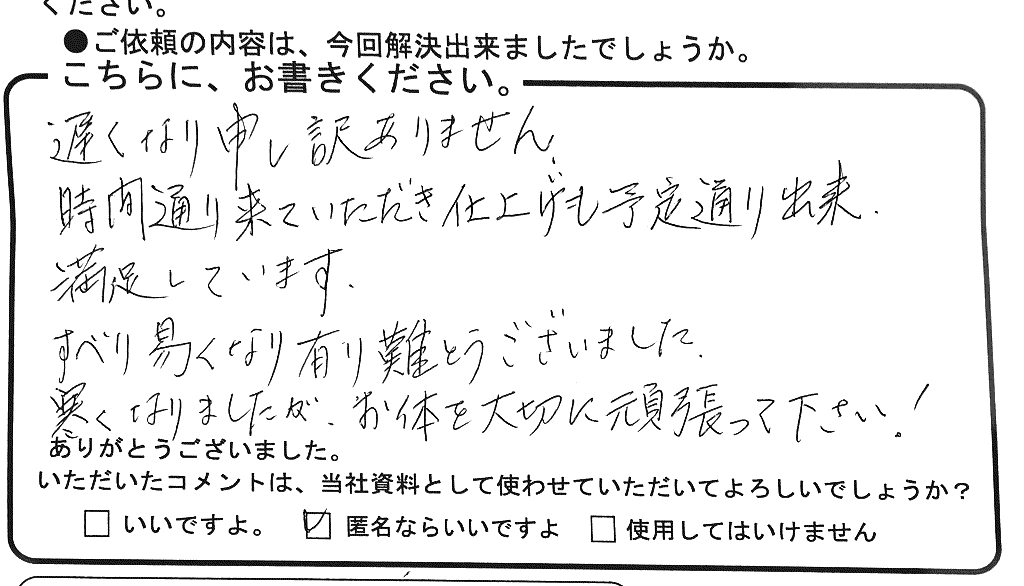 ください。
●ご依頼の内容は、今回解決出来ましたでしょうか。
こちらに、お書きください。
遅くなり申し訳ありません。
時間通り来ていただき仕上げも予定通り出来、
満足しています。
すべり易くなり有り難とうございました。
寒くなりましたが、お体を大切に頑張って下さい!
ありがとうございました。
いただいたコメントは、当社資料として使わせていただいてよろしいでしょうか?
いいですよ。 匿名ならいいですよ 使用してはいけません